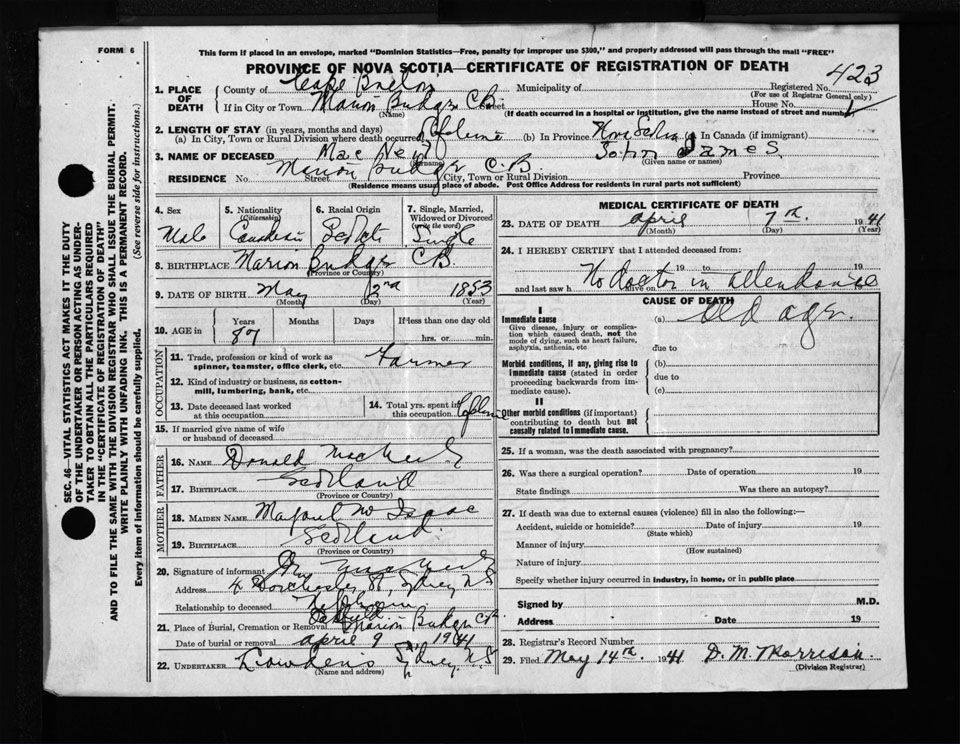 FORM 6
This form if placed in an envelope, marked "Dominion Statistics—Free, penalty for improper use $300," and properly addressed will pass through the mail "FREE"
PROVINCE OF NOVA SCOTIA—CERTIFICATE OF REGISTRATION OF DEATH
423
1. PLACE OF DEATH
County of Cape Breton Municipality of Registered No.
(For use of Registrar General only)
If in City or Town Marion Bridge C.B. Street House No.
(Name) (If death occurred in a hospital or institution, give the name instead of street and number)
2. LENGTH OF STAY (in years, months and days)
(a) In City, Town or Rural Division where death occurred Lifetime (b) In Province Nova Scotia (c) In Canada (if immigrant)
3. NAME OF DECEASED MacNeil John James
(Surname) (Given name or names)
RESIDENCE No. Street Marion Bridge C.B. City, Town or Rural Division Province
(Residence means usual place of abode. Post Office Address for residents in rural parts not sufficient)
4. Sex Male
5. Nationality (Citizenship) Canadian
6. Racial Origin Scotch
7. Single, Married, Widowed or Divorced (write the word) Single
8. BIRTHPLACE Marion Bridge CB
(Province or Country)
9. DATE OF BIRTH May 2nd 1853
(Month) (Day) (Year)
10. AGE in Years Months Days If less than one day old
87 hrs. or min.
OCCUPATION
11. Trade, profession or kind of work as spinner, teamster, office clerk, etc. Farmer
12. Kind of industry or business, as cotton-mill, lumbering, bank, etc.
13. Date deceased last worked at this occupation
14. Total yrs. spent in this occupation Lifetime
15. If married give name of wife or husband of deceased
FATHER
16. NAME Donald MacNeil
17. BIRTHPLACE Scotland
(Province or Country)
MOTHER
18. MAIDEN NAME Mc Isaac
19. BIRTHPLACE Scotland
(Province or Country)
20. Signature of informant
Address 4 Dorchester St, Sydney N.S
Relationship to deceased
21. Place of Burial, Cremation or Removal Marion Bridge CB
Date of burial or removal April 9 1941
22. UNDERTAKER Sydney N.S
(Name and address)
MEDICAL CERTIFICATE OF DEATH
23. DATE OF DEATH April 7th 1941
(Month) (Day) (Year)
24. I HEREBY CERTIFY that I attended deceased from:
19 to 19
and last saw h alive on 19
No doctor in attendance
CAUSE OF DEATH
I
Immediate cause (a) Old age.
Give disease, injury or complication which caused death, not the mode of dying, such as heart failure, asphyxia, asthenia, etc
due to
Morbid conditions, if any, giving rise to immediate cause (stated in order proceeding backwards from immediate cause).
(b)
due to
(c)
II
Other morbid conditions (if important) contributing to death but not causally related to immediate cause.
25. If a woman, was the death associated with pregnancy?
26. Was there a surgical operation? Date of operation 19
State findings Was there an autopsy?
27. If death was due to external causes (violence) fill in also the following:—
Accident, suicide or homicide? Date of injury 19
(State which)
Manner of injury
(How sustained)
Nature of injury
Specify whether injury occurred in industry, in home, or in public place
Signed by M.D.
Address Date 19
28. Registrar's Record Number
29. Filed May 14th 1941 D. M. Morrison
(Division Registrar)
SEC. 46—VITAL STATISTICS ACT MAKES IT THE DUTY
OF THE UNDERTAKER OR PERSON ACTING AS UNDER-
TAKER TO OBTAIN ALL THE PARTICULARS REQUIRED
IN THE "CERTIFICATE OF REGISTRATION OF DEATH"
AND TO FILE THE SAME WITH THE DIVISION REGISTRAR WHO SHALL ISSUE THE BURIAL PERMIT.
WRITE PLAINLY WITH UNFADING INK. THIS IS A PERMANENT RECORD.
Every item of information should be carefully supplied. (See reverse side for instructions.)